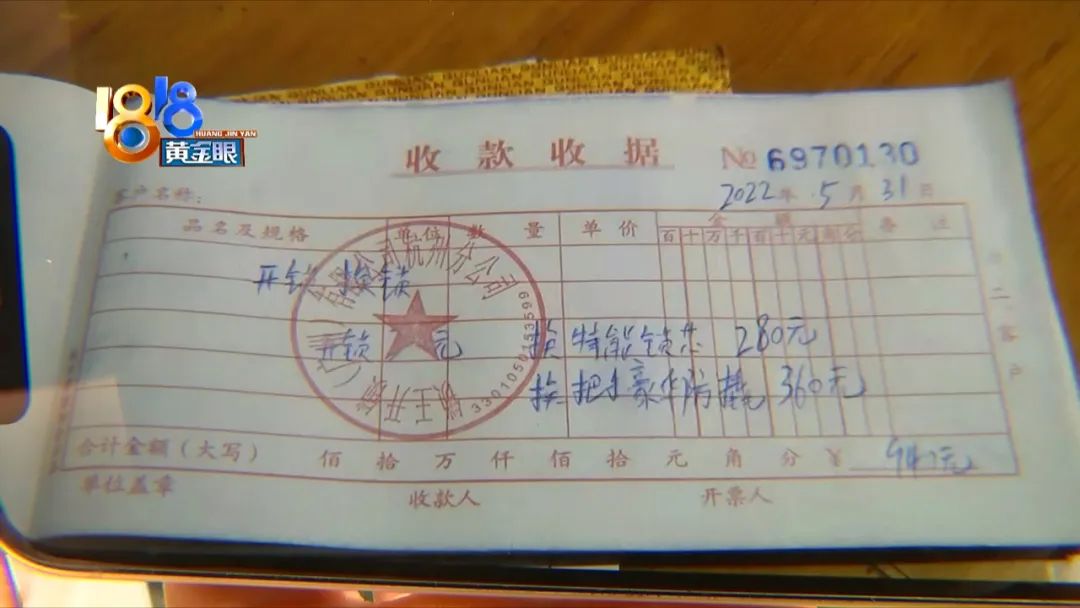 1818
HUANG JIN YAN
黄金眼
收款收据
№ 6970130
2022年5月31日
客户名称：
品名及规格 单位 数量 单价 金额 备注
百十万千百十元角分
开锁 换锁
开锁 元 换 特能锁芯 280元
换 把手豪华防撬 360元
合计金额（大写） 佰 拾 万 仟 佰 拾 元 角 分 ¥
单位盖章 收款人 开票人
公司杭州分公司
锁王开锁